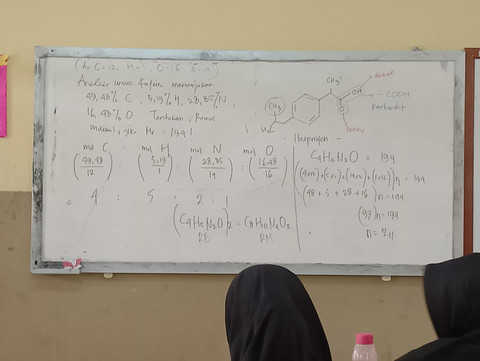 (Ar C=12, H=1, O=16, N=14)
Analisis unsur kafein menunjukkan
49,48% C, 5,19% H, 28,85% N,
16,48% O Tentukan rumus
molekul, jika Mr = 194 !
mol C : mol H : mol N : mol O
(49,48/12) (5,19/1) (28,85/14) (16,48/16)
= 4 : 5 : 2 : 1
(C4H5N2O)2 = C8H10N4O2
RE RM
CH3
CH3
OH
O
- COOH
H3C
- Ibuprofen -
C4H5N2O = 194
((4x12)+(5x1)+(14x2)+(1x16))n = 194
(48 + 5 + 28 + 16)n = 194
(97)n = 194
n = 2//